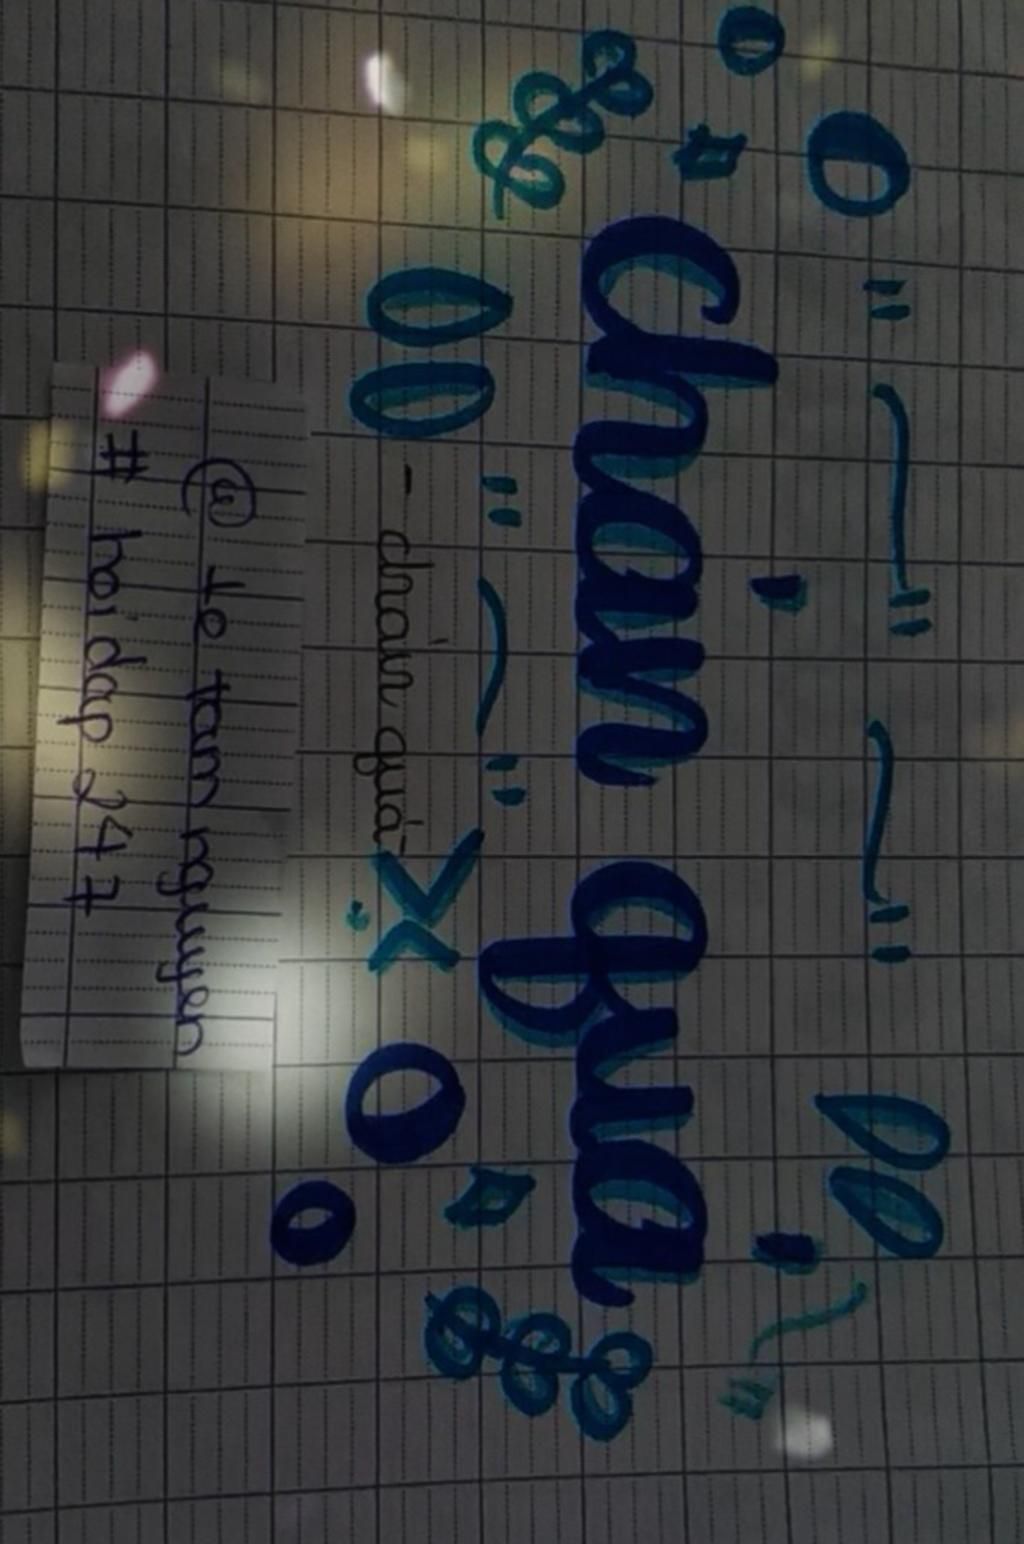 chán quá
- chán quá -
@ te tam nguyen
# hoi dap 247